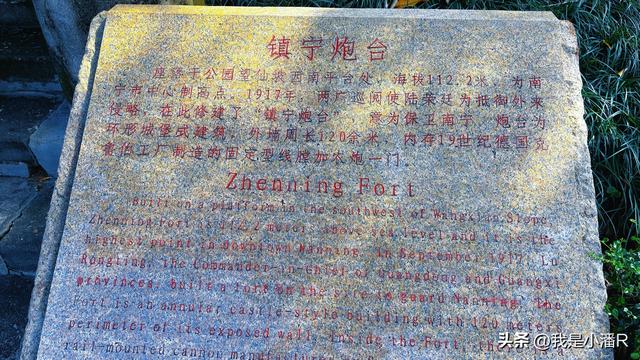 镇宁炮台
座落于公园望仙坡西南平台处，海拔112.2米，为南
宁市中心制高点。1917年，两广巡阅使陆荣廷为抵御外来
侵略，在此修建了“镇宁炮台”，意为保卫南宁。炮台为
环形城堡式建筑，外墙周长120余米，内存19世纪德国克
鲁伯工厂制造的固定型线膛加农炮一门。
Zhenning Fort
Built on a platform in the southwest of Wangxian Slope,
Zhenning Fort is 112.2 meters above sea level and it is the
highest point in downtown Nanning. In September 1917, Lu
Rongting, the Commander-in-Chief of Guangdong and Guangxi
provinces, built a fort on the site to guard Nanning. The
Fort is an annular castle-style building with 120 meters
perimeter of its exposed wall. Inside the Fort, there
rail-mounted cannon manu
头条 @我是小潘R